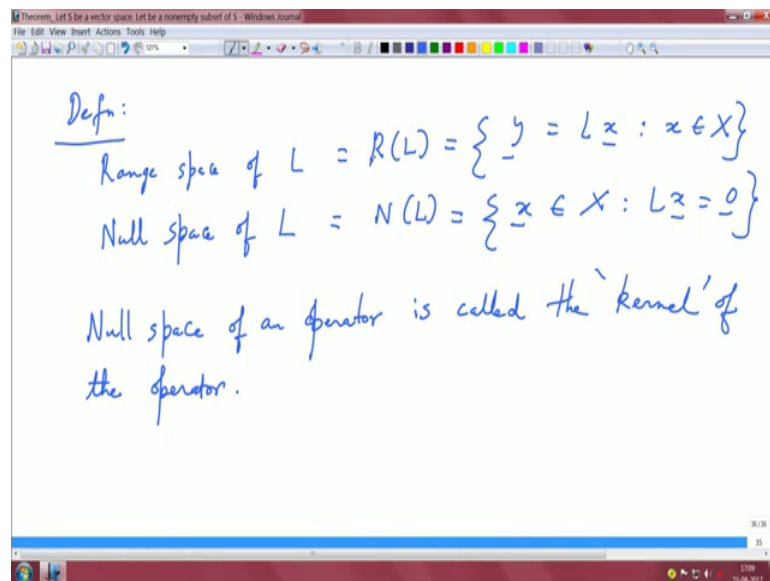 Theorem_ Let S be a vector space. Let be a nonempty subset of S - Windows Journal
File Edit View Insert Actions Tools Help
121%
B I
Defn:
Range space of L = R(L) = { y = L x : x ∈ X }
Null space of L = N(L) = { x ∈ X : L x = 0 }
Null space of an operator is called the 'kernel' of
the operator.
36/36
35
17:09